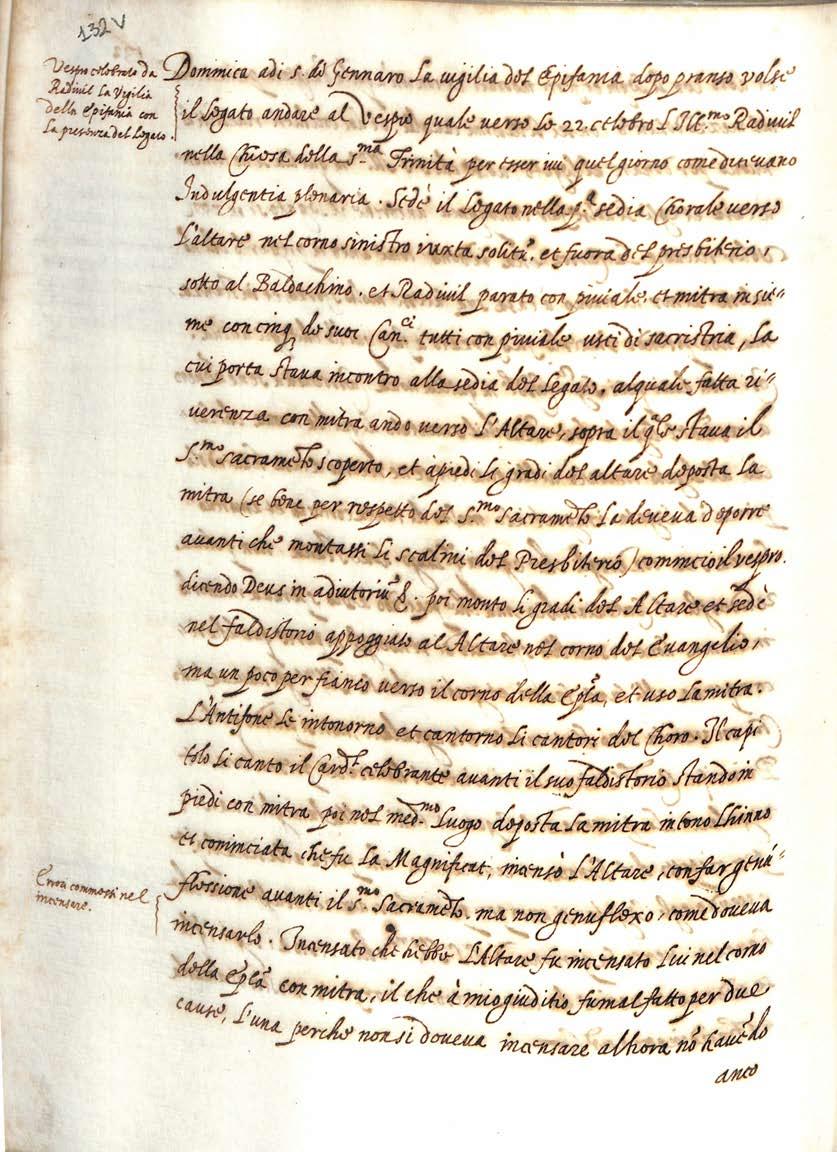 132v
Vespro celebrato da
Radivil la Vigilia
della Epifania con
la presenza del Legato.
Dominica adi 5. di Gennaro la vigilia del Epifania dopo pranso volse
il Legato andare al Vespro quale verso le 22. celebro l'Ill.mo Radivil
nella Chiesa della S.ma Trinità per esser ivi quel giorno come dicevano
Indulgentia plenaria. Sedè il Legato nella p.a sedia Chorale verso
l'altare nel corno sinistro iuxta solitũ. et fuora del presbiterio,
sotto al Baldachino. et Radivil parato con piviale. et mitra insie=
me con cinq de suoi Can.ci tutti con piviale uscì di sacristia, la
cui porta stava incontro alla sedia del Legato. al quale fatta ri=
verenza con mitra ando verso l'Altare, sopra il q̃le stava il
S.mo sacramẽto scoperto, et à piedi li gradi del altare deposta la
mitra (se bene per respetto del S.mo Sacramẽto la deveva deporre
avanti che montassi li scalini del Presbiterio) comincio il vespro.
dicendo Deus in adiutoriũ &. poi monto li gradi del Altare et sedè
nel faldistorio appoggiato al Altare nel corno del Evangelio,
ma un poco per fianco verso il corno della Ep̃la, et uso la mitra.
l'Antifone le intonorno et cantorno li cantori del Choro. Il capi
tolo li canto il Card.l celebrante avanti il suo faldistorio stando in
piedi con mitra poi nel med.mo luogo deposta la mitra intono l'hinno
et cominciata che fu la Magnificat, incensò l'Altare, con far genu=
Errori commessi nel
incensare.
flessione avanti il S.mo Sacramẽto. ma non genuflexo, come doveva
incensarlo. Incensato che hebbe l'Altare fu incensato lui nel corno
della Ep̃la con mitra, il che à mio giuditio fu mal fatto per due
cause, l'una perche non si doveva incensare alhora nõ havẽdo
anco